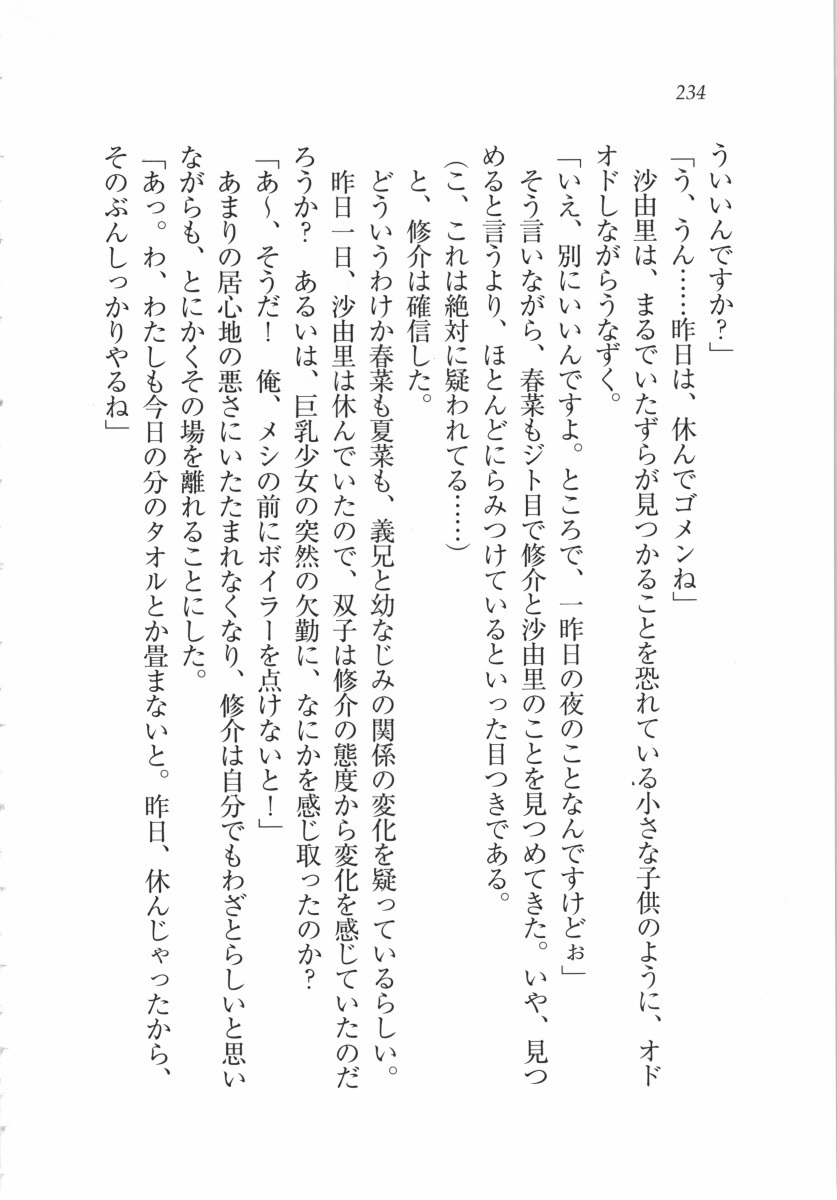 234
ういいんですか?」
「う、うん……昨日は、休んでゴメンね」
沙由里は、まるでいたずらが見つかることを恐れている小さな子供のように、オド
オドしながらうなずく。
「いえ、別にいいんですよ。ところで、一昨日の夜のことなんですけどぉ」
そう言いながら、春菜もジト目で修介と沙由里のことを見つめてきた。いや、見つ
めると言うより、ほとんどにらみつけているといった目つきである。
(こ、これは絶対に疑われてる……)
と、修介は確信した。
どういうわけか春菜も夏菜も、義兄と幼なじみの関係の変化を疑っているらしい。
昨日一日、沙由里は休んでいたので、双子は修介の態度から変化を感じていたのだ
ろうか? あるいは、巨乳少女の突然の欠勤に、なにかを感じ取ったのか?
「あ〜、そうだ! 俺、メシの前にボイラーを点けないと!」
あまりの居心地の悪さにいたたまれなくなり、修介は自分でもわざとらしいと思い
ながらも、とにかくその場を離れることにした。
「あっ。わ、わたしも今日の分のタオルとか畳まないと。昨日、休んじゃったから、
そのぶんしっかりやるね」